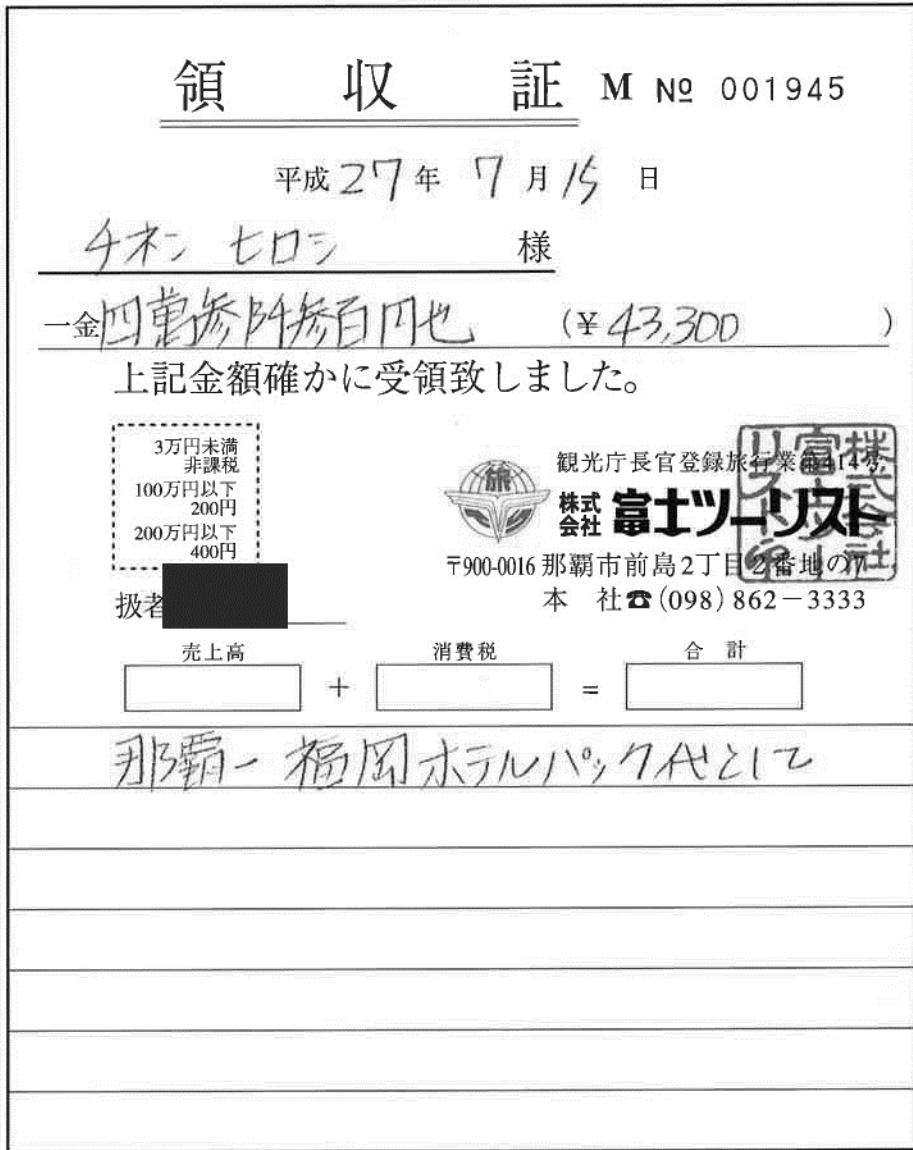 領収証 M № 001945
平成27年7月15日
チネン ヒロシ 様
一金四萬参阡参百円也 (¥43,300 )
上記金額確かに受領致しました。
3万円未満
非課税
100万円以下
200円
200万円以下
400円
観光庁長官登録旅行業第414号
旅
株式会社 富士ツーリスト
〒900-0016 那覇市前島2丁目2番地の7
本 社☎(098)862-3333
株式会社
富士ツー
リスト印
扱者
売上高 消費税 合計
+ =
那覇-福岡ホテルパック代として